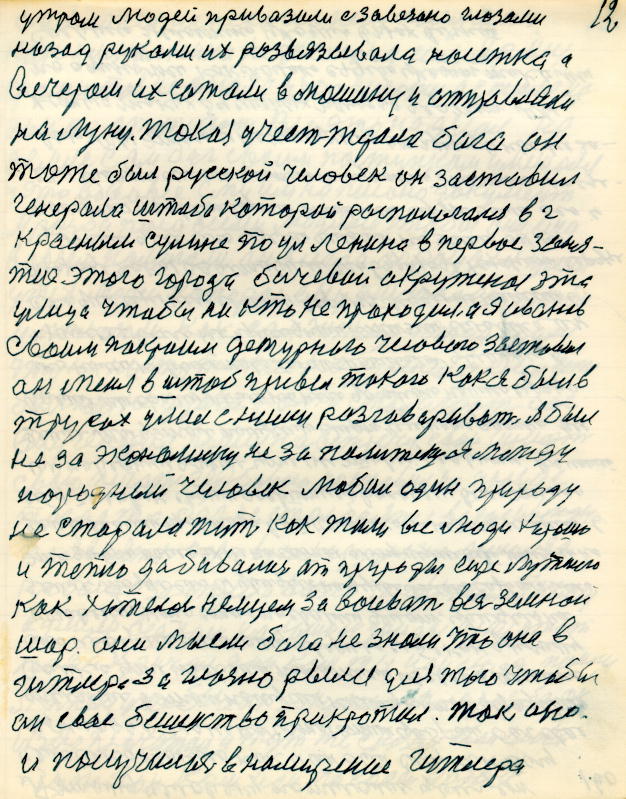 12
утром людей привазили с завезано глозами
назад руками их розвязывала ночтка а
Вечером их сажали в машину и отправляли
на луну. Токая участ ждала бога он
тоже был русской человек он заставил
генерала штаба которой росполглался в г
Красным сулине по ул Ленина в первое заня-
тие этого города бичевай акружоная эта
улица чтобы ни кто не проходил. а я иванов
своим покроим дежурного человего заставил
он меня в штаб привел такого как я был в
трусах умел с ними розговариват. Я был
не за экономику не за политику я между
народный человек любил один природу
не старался жит как жили вы люди хорошо
и тепло дабивался ат природы еще лутшего
Как хотелос немцам завоеват вся земной
шар. они мысли бога не знали что она в
гитлера за глозно рылся для того чтобы
он свае бешенство прикротил. так оно.
и получилося в намирение гитлера